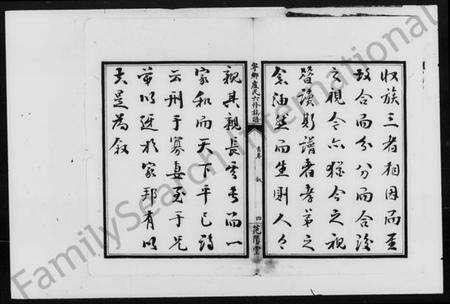 收族三者相因而至
故合而分分而合後
之視今亦猶今之視
昔譜則讀者孝弟之
念油然而生則人人
寧鄉盧氏六修族譜
卷首 敘 四 范陽堂
親其親長其長而一
家和而天下平已詩
云刑于寡妻至于兄
弟以近于家邦有以
夫是為敘
FamilySearch International